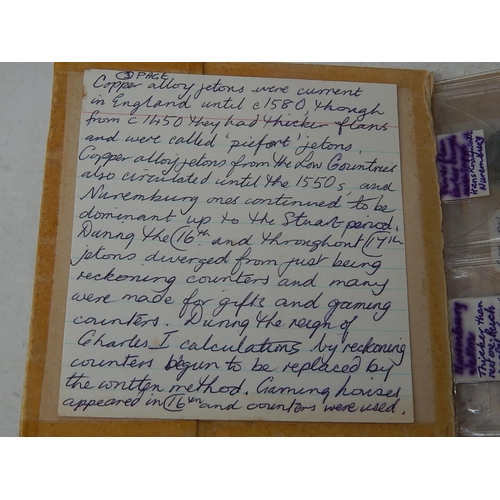 ③ PAGE
Copper alloy jetons were current
in England until c1580, though
from c 1450 they had thicker flans
and were called 'piefort' jetons.
Copper alloy jetons from the Low Countries
also circulated until the 1550s, and
Nuremburg ones continued to be
dominant up to the Stuart period.
During the 16th and throughout 17th
jetons diverged from just being
reckoning counters and many
were made for gifts and gaming
counters. During the reign of
Charles I calculations by reckoning
counters begun to be replaced by
the written method. Gaming houses
appeared in 16th and counters were used.
Nuremburg
Thicker than